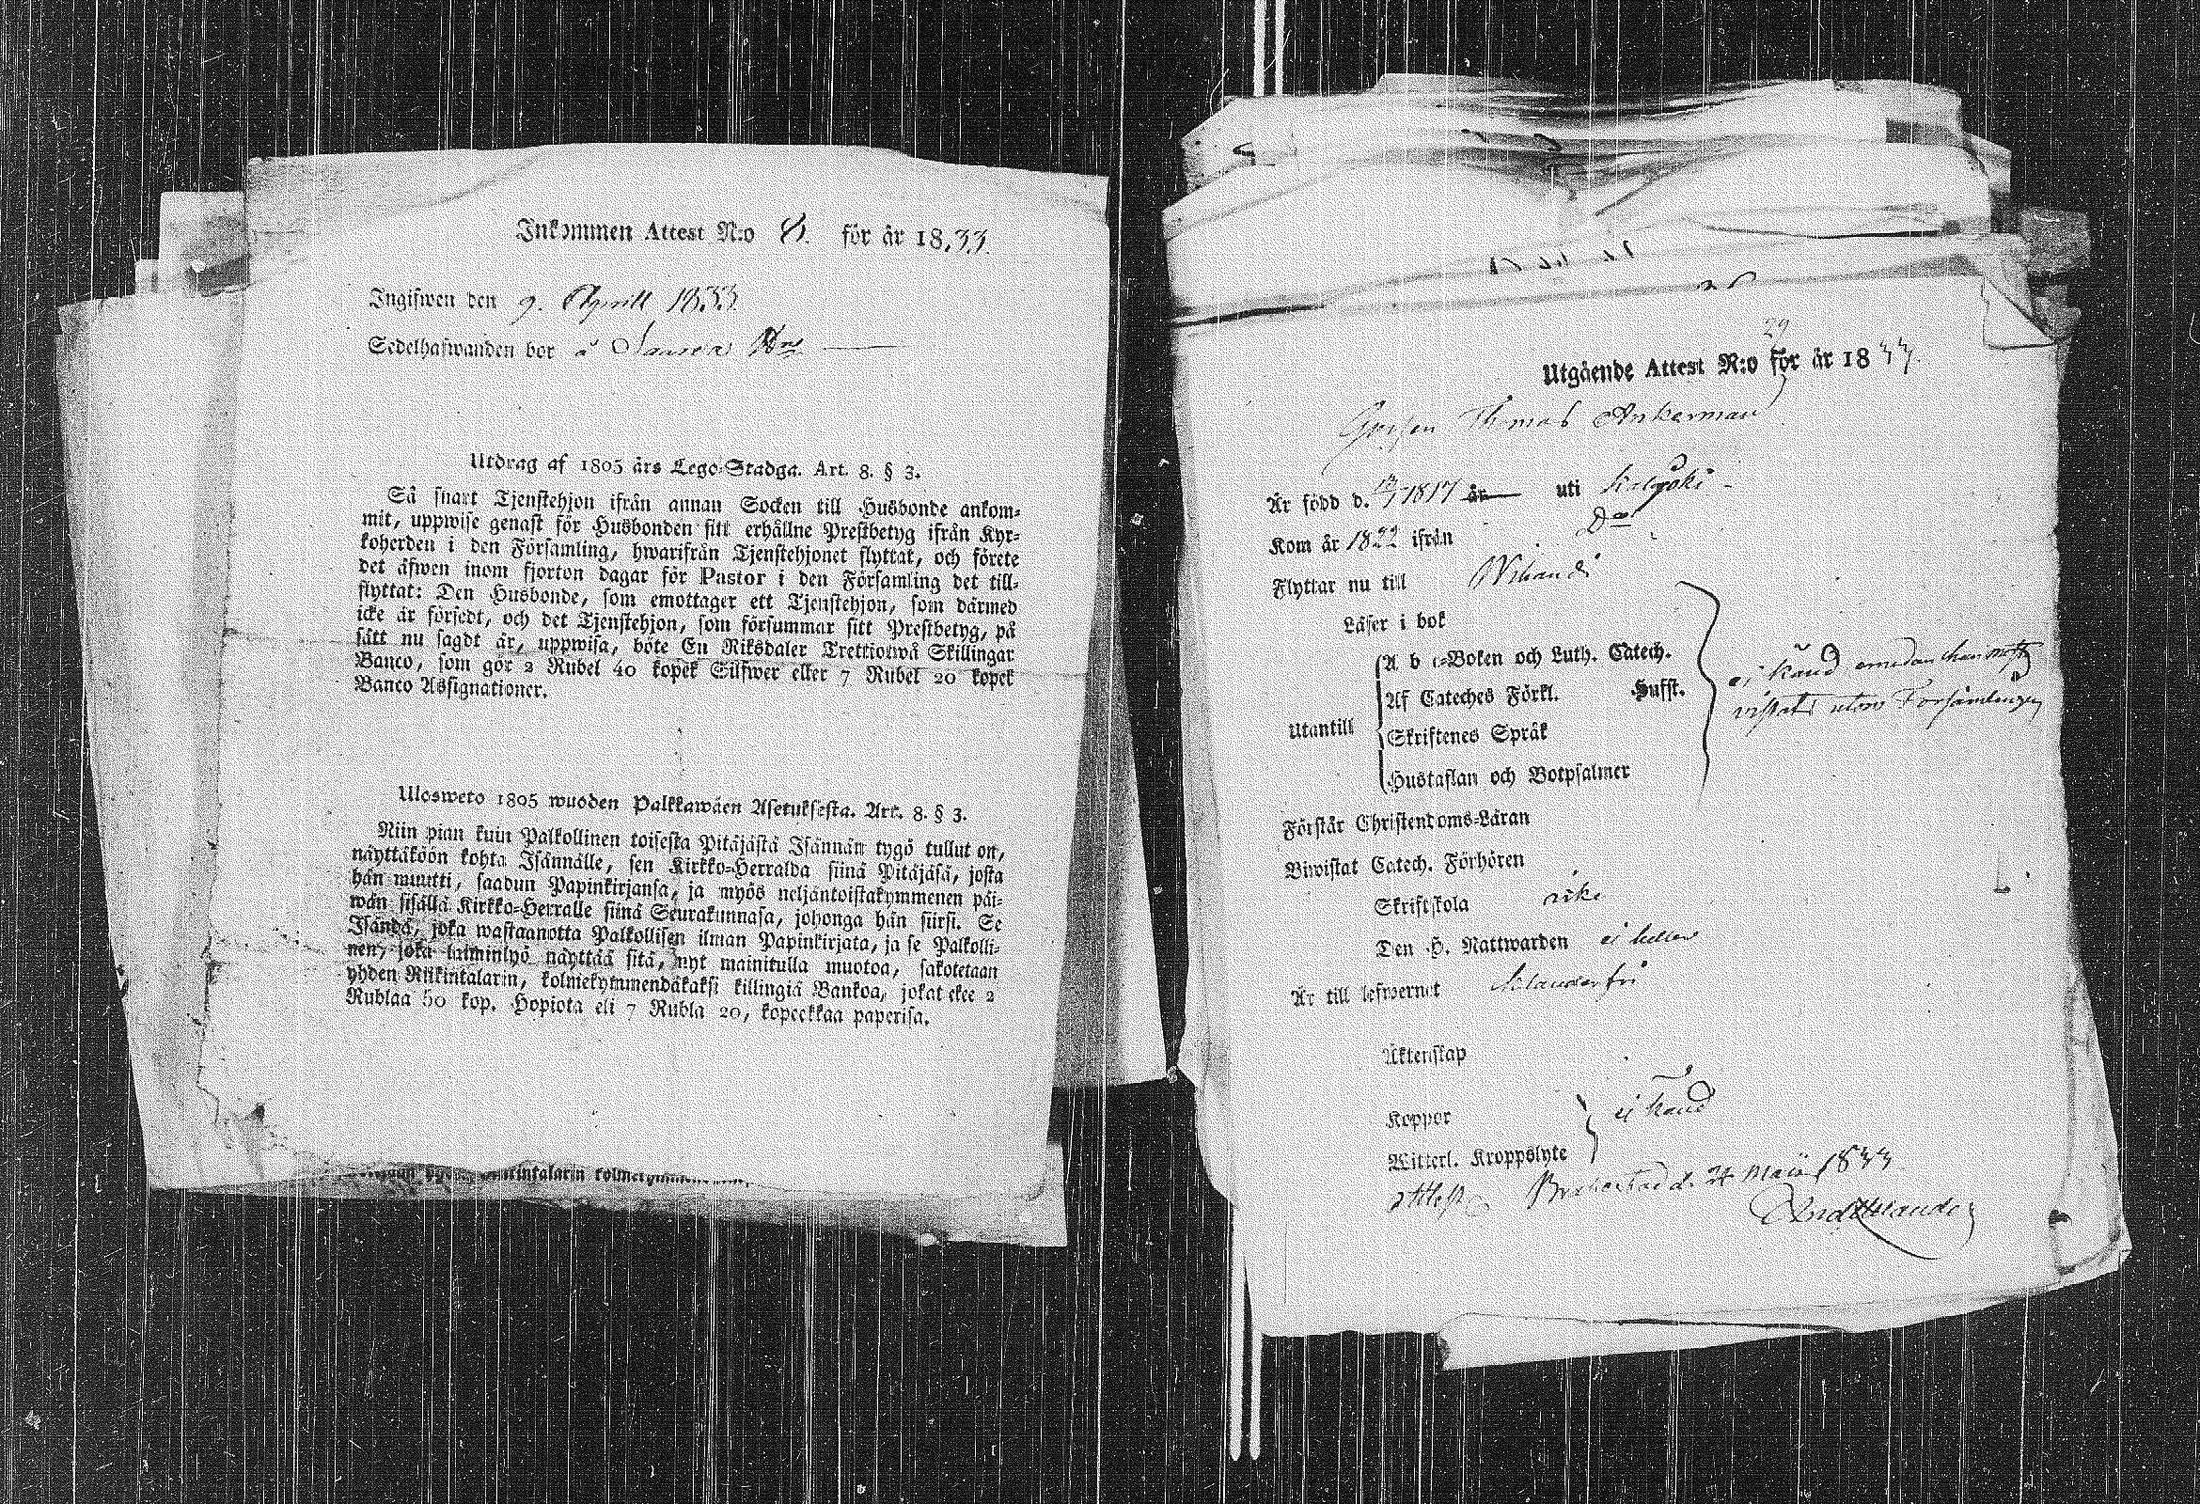 Inkommen Attest N:o 8. för år 1833.
Ingifwen den 9. Aprill 1833
Sedelhafwanden bor å
Utdrag af 1805 års Lego-Stadga. Art. 8. § 3.
Så snart Tjenstehjon ifrån annan Socken till Husbonde ankom=
mit, uppwise genast för Husbonden sitt erhållne Prestbetyg ifrån Kyr=
koherden i den Församling, hwarifrån Tjenstehjonet flyttat, och förete
det äfwen inom fjorton dagar för Pastor i den Församling det till=
flyttat: Den Husbonde, som emottager ett Tjenstehjon, som därmed
icke är försedt, och det Tjenstehjon, som försummar sitt Prestbetyg, på
sätt nu sagdt är, uppwisa, böte En Riksdaler Trettiotwå Skillingar
Banco, som gör 2 Rubel 40 kopek Silfwer eller 7 Rubel 20 kopek
Banco Assignationer.
Ulosweto 1805 wuoden Palkkawäen Asetuksesta. Art. 8. § 3.
Niin pian kuin Palkollinen toisesta Pitäjästä Isännän tygö tullut on,
näyttäköön kohta Isännälle, sen Kirkko=Herralda siinä Pitäjäsä, josta
hän muutti, saadun Papinkirjansa, ja myös neljäntoistakymmenen päi=
wän sisällä Kirkko=Herralle siinä Seurakunnasa, johonga hän siirsi. Se
Isändä, joka wastaanotta Palkollisen ilman Papinkirjata, ja se Palkolli=
nen, joka laiminlyö näyttää sitä, nyt mainitulla muotoa, sakotetaan
yhden Riikintalarin, kolmekymmendäkaksi killingiä Bankoa, jokat ekee 2
Rublaa 50 kop. Hopiota eli 7 Rubla 20, kopeekkaa paperisa.
29
Utgående Attest N:o för år 1833.
Gossen Thomas Ankerman
Är född d. 1817 år uti Kalajoki
Kom år 1822 ifrån Do
Flyttar nu till Wihandi
Läser i bok
Utantill
A b c=Boken och Luth. Catech.
Af Cateches Förkl. Hufst.
Skriftenes Språk
Hustaflan och Botpsalmer
ej känd emedan han mest
vistats utom Församlingen
Förstår Christendoms=Läran
Biwistat Catech. Förhören
Skriftskola icke
Den H. Nattwarden ej heller
Är till lefwernet klanderfri
Äktenskap
Koppor
Witterl. Kroppslyte
ej känd
Attest. Brahestad d. 24 Maii 1833